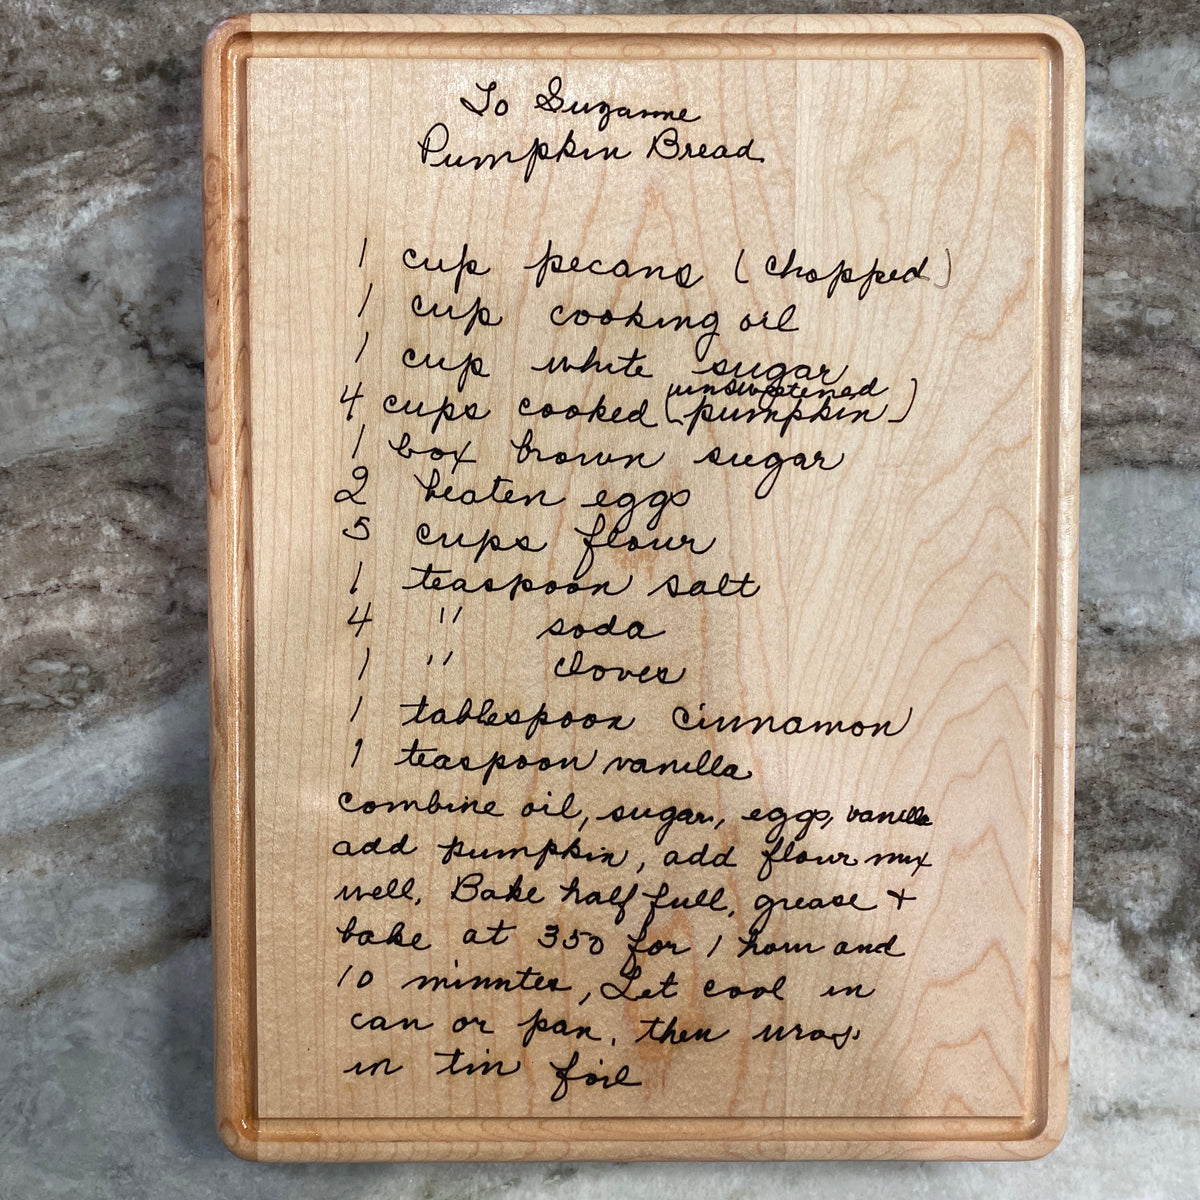 To Suzanne
Pumpkin Bread
1 cup pecans (chopped)
1 cup cooking oil
1 cup white sugar
unsweetened
4 cups cooked (pumpkin)
1 box brown sugar
2 beaten eggs
5 cups flour
1 teaspoon salt
4 " soda
1 " cloves
1 tablespoon cinnamon
1 teaspoon vanilla
combine oil, sugar, eggs, vanilla
add pumpkin, add flour mix
well. Bake half full, grease +
bake at 350 for 1 hour and
10 minutes, Let cool in
can or pan, then wrap
in tin foil